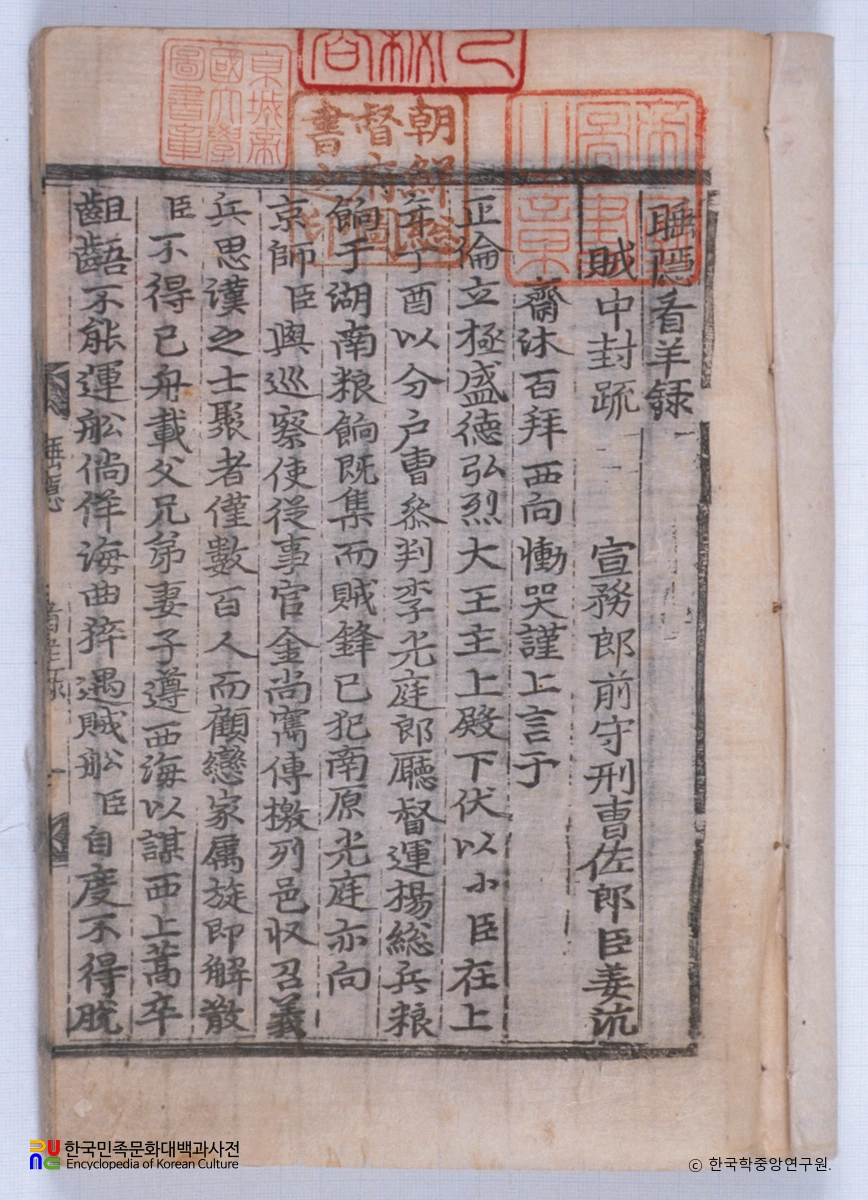 睡隱看羊録
賊中封疏
宣務郎前守刑曹佐郎臣姜沆
齋沐百拜西向慟哭謹上言于
正倫立極盛德弘烈大王主上殿下伏以小臣在上
年丁酉以分戶曹叅判李光庭郎廳督運楊總兵粮
餉于湖南粮餉既集而賊鋒已犯南原光庭亦向
京師臣與巡察使從事官金尚寯傳檄列邑收召義
兵思漢之士聚者僅數百人而顧戀家属旋即解散
臣不得已舟載父兄弟妻子遵西海以謀西上蒿卒
齟齬不能運舩倘佯海曲猝遇賊舩臣自度不得脫
朝鮮總督府圖書之印
京城帝國大學圖書章
睡隱
한국민족문화대백과사전
Encyclopedia of Korean Culture
© 한국학중앙연구원.